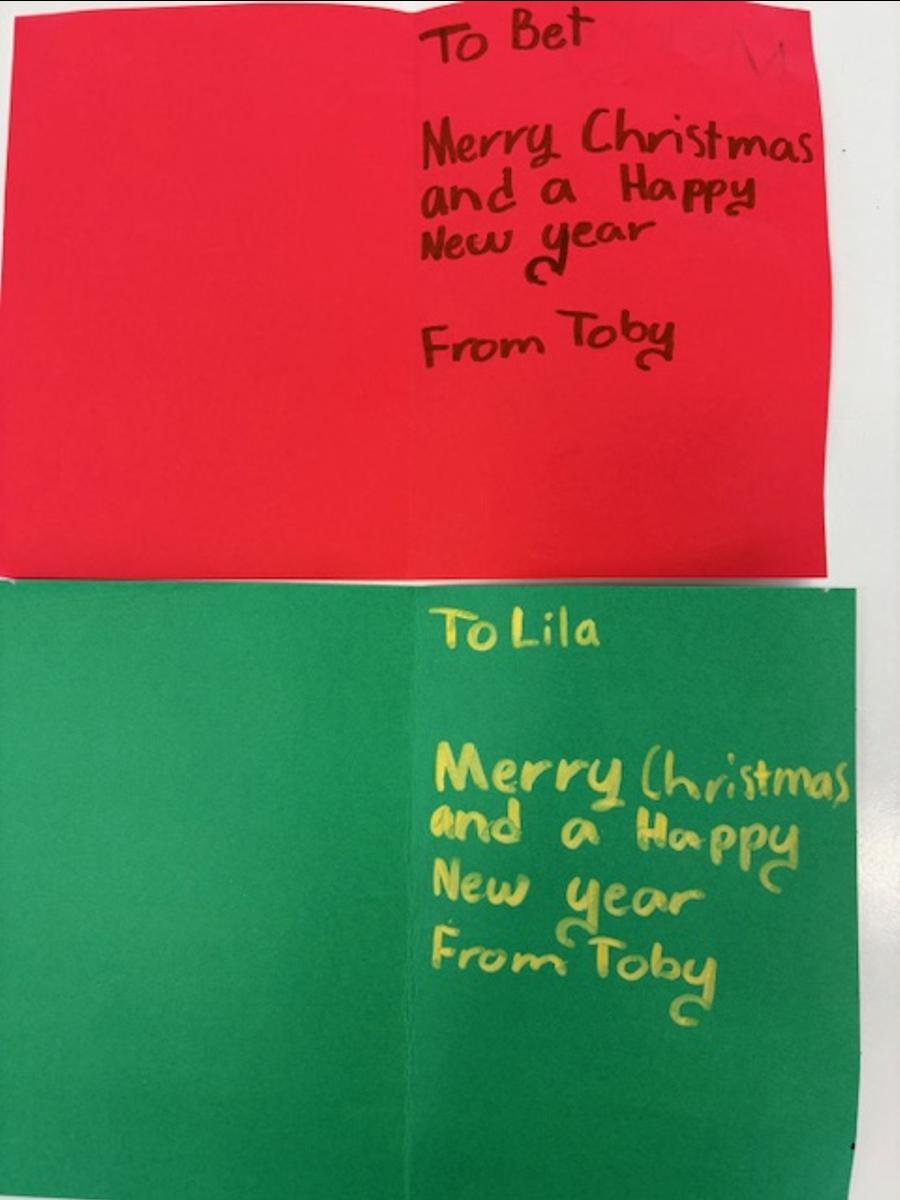 To Bet
Merry Christmas
and a Happy
New year
From Toby
To Lila
Merry Christmas
and a Happy
New year
From Toby